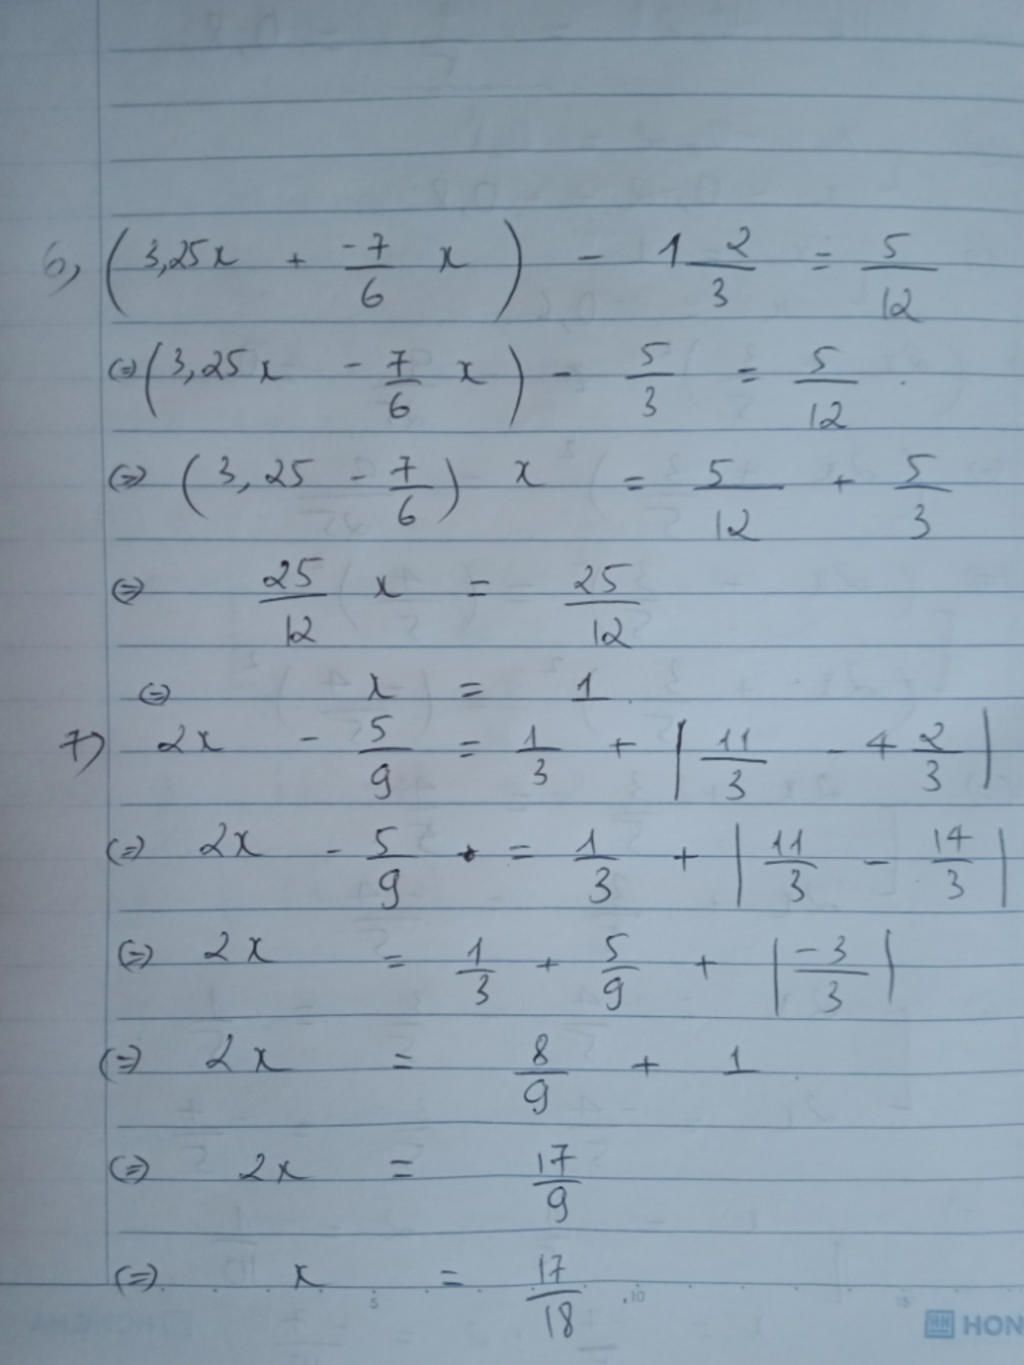 6, (3,25x + -7/6 x) - 1 2/3 = 5/12
(=) (3,25x - 7/6 x) - 5/3 = 5/12 .
(=) (3,25 - 7/6) x = 5/12 + 5/3
(=) 25/12 x = 25/12
(=) x = 1
7) 2x - 5/9 = 1/3 + |11/3 - 4 2/3|
(=) 2x - 5/9 = 1/3 + |11/3 - 14/3|
(=) 2x = 1/3 + 5/9 + |-3/3|
(=) 2x = 8/9 + 1
(=) 2x = 17/9
(=) x = 17/18
5 10 15
HON